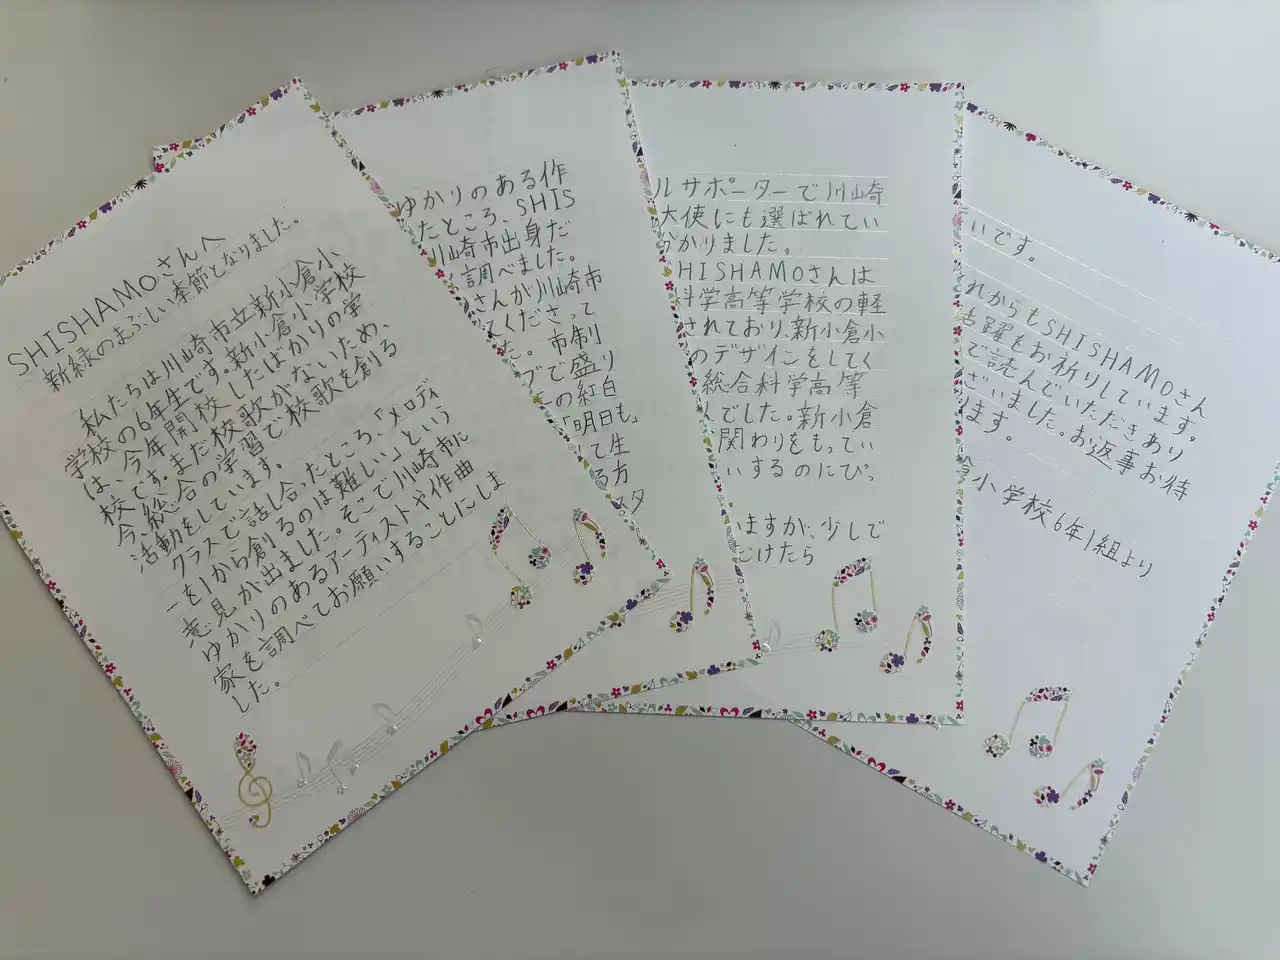 SHISHAMOさんへ
新緑のまぶしい季節となりました。
私たちは川崎市立新小倉小
学校の6年生です。新小倉小学校
は、今年開校したばかりの学
校です。まだ校歌がないため、
今、総合の学習で校歌を創る
活動をしています。
クラスで話し合ったところ、「メロディ
ーを1から創るのは難しい」という
意見が出ました。そこで川崎市に
ゆかりのあるアーティストや作曲
家を調べてお願いすることにしま
した。
ゆかりのある作
たところ、SHIS
川崎市出身だ
調べました。
さんが川崎市
てくださって
た。市制
ブで盛り
の紅白
「明日も」
て生
る方
ルサポーターで川崎
大使にも選ばれてい
分かりました。
HISHAMOさんは
科学高等学校の軽
されており、新小倉小
のデザインをしてく
総合科学高等
んでした。新小倉
関わりをもってい
いするのにぴっ
いますが、少しで
だけたら
いです。
れからもSHISHAMOさん
活躍をお祈りしています。
で読んでいただきあり
ざいました。お返事お待
ます。
倉小学校6年1組より